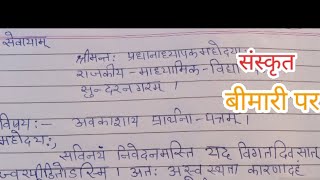 सेवायाम्
श्रीमन्तः प्रधानाध्यापकमहोदयाः
राजकीय-माध्यमिक-विद्या
सुन्दरनगरम् ।
संस्कृत
बीमारी पर
विषय:- अवकाशाय प्रार्थना-पत्रम् ।
महोदय:,
सविनयं निवेदनमस्ति यद् विगतदिवसात्
ज्वरपीडितोऽस्मि । अतः अस्वस्थता कारणादहं